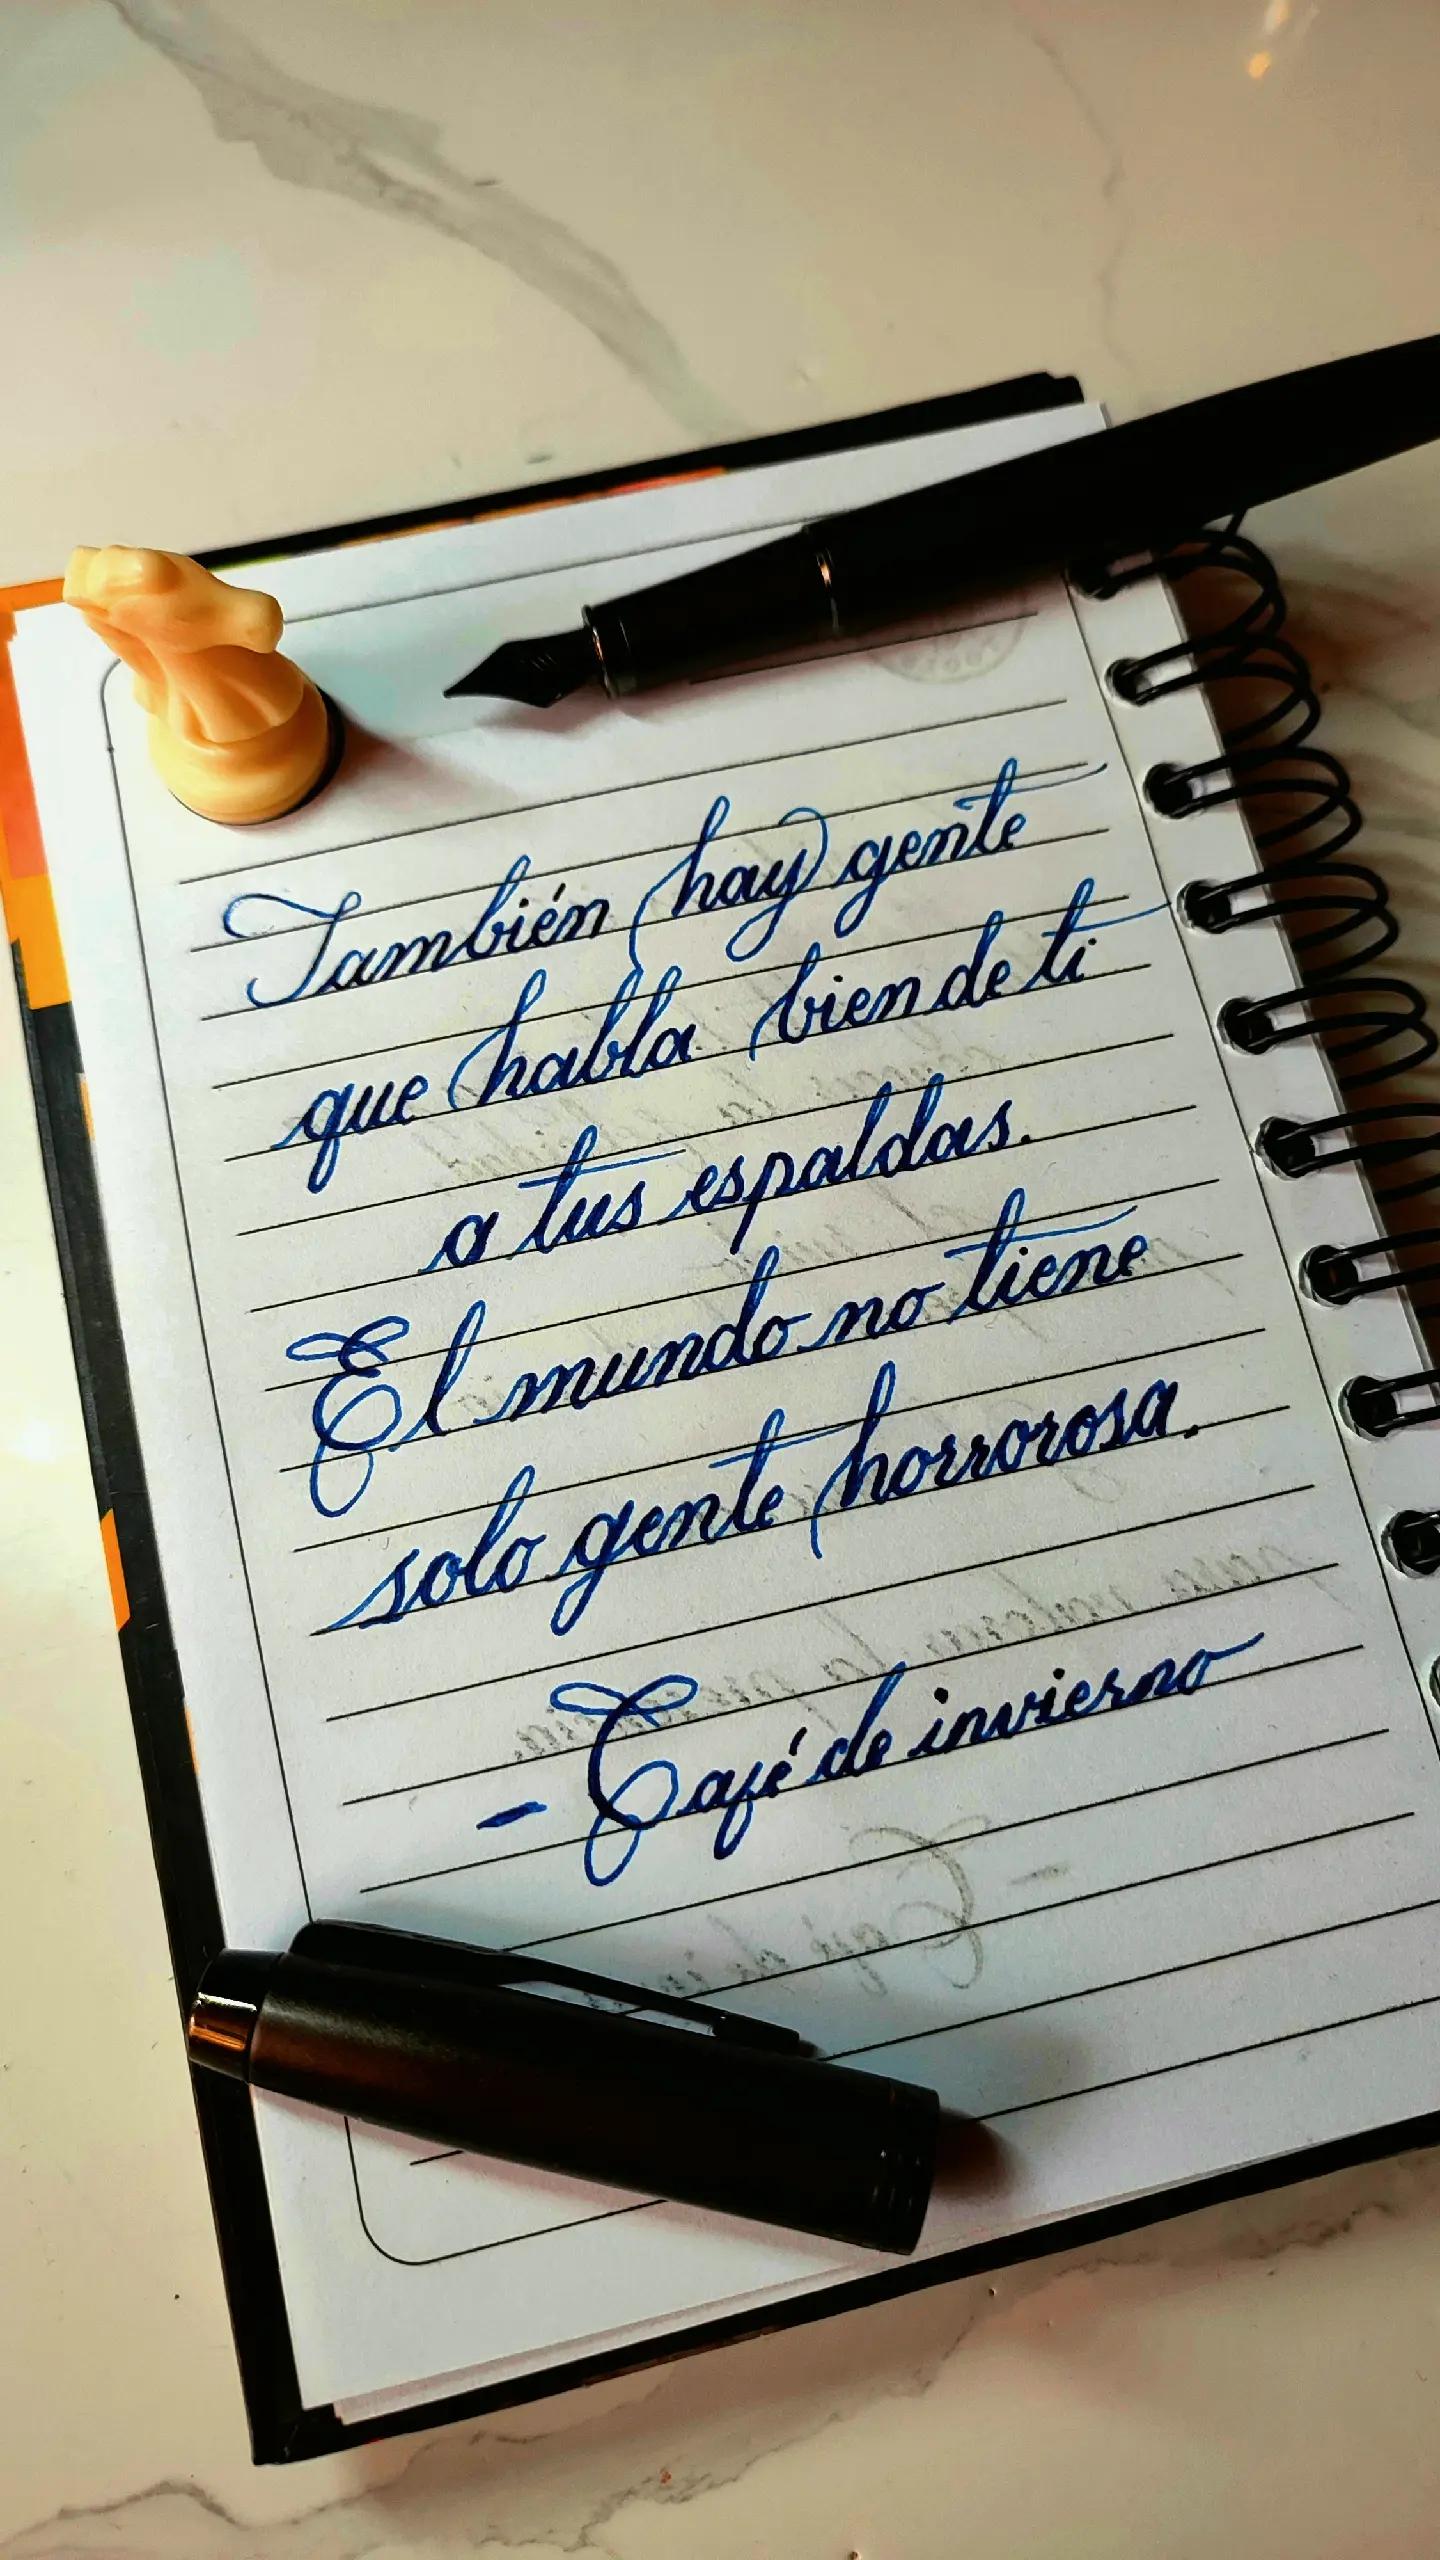 También hay gente
que habla bien de ti
a tus espaldas.
El mundo no tiene
solo gente horrorosa.
- Café de invierno